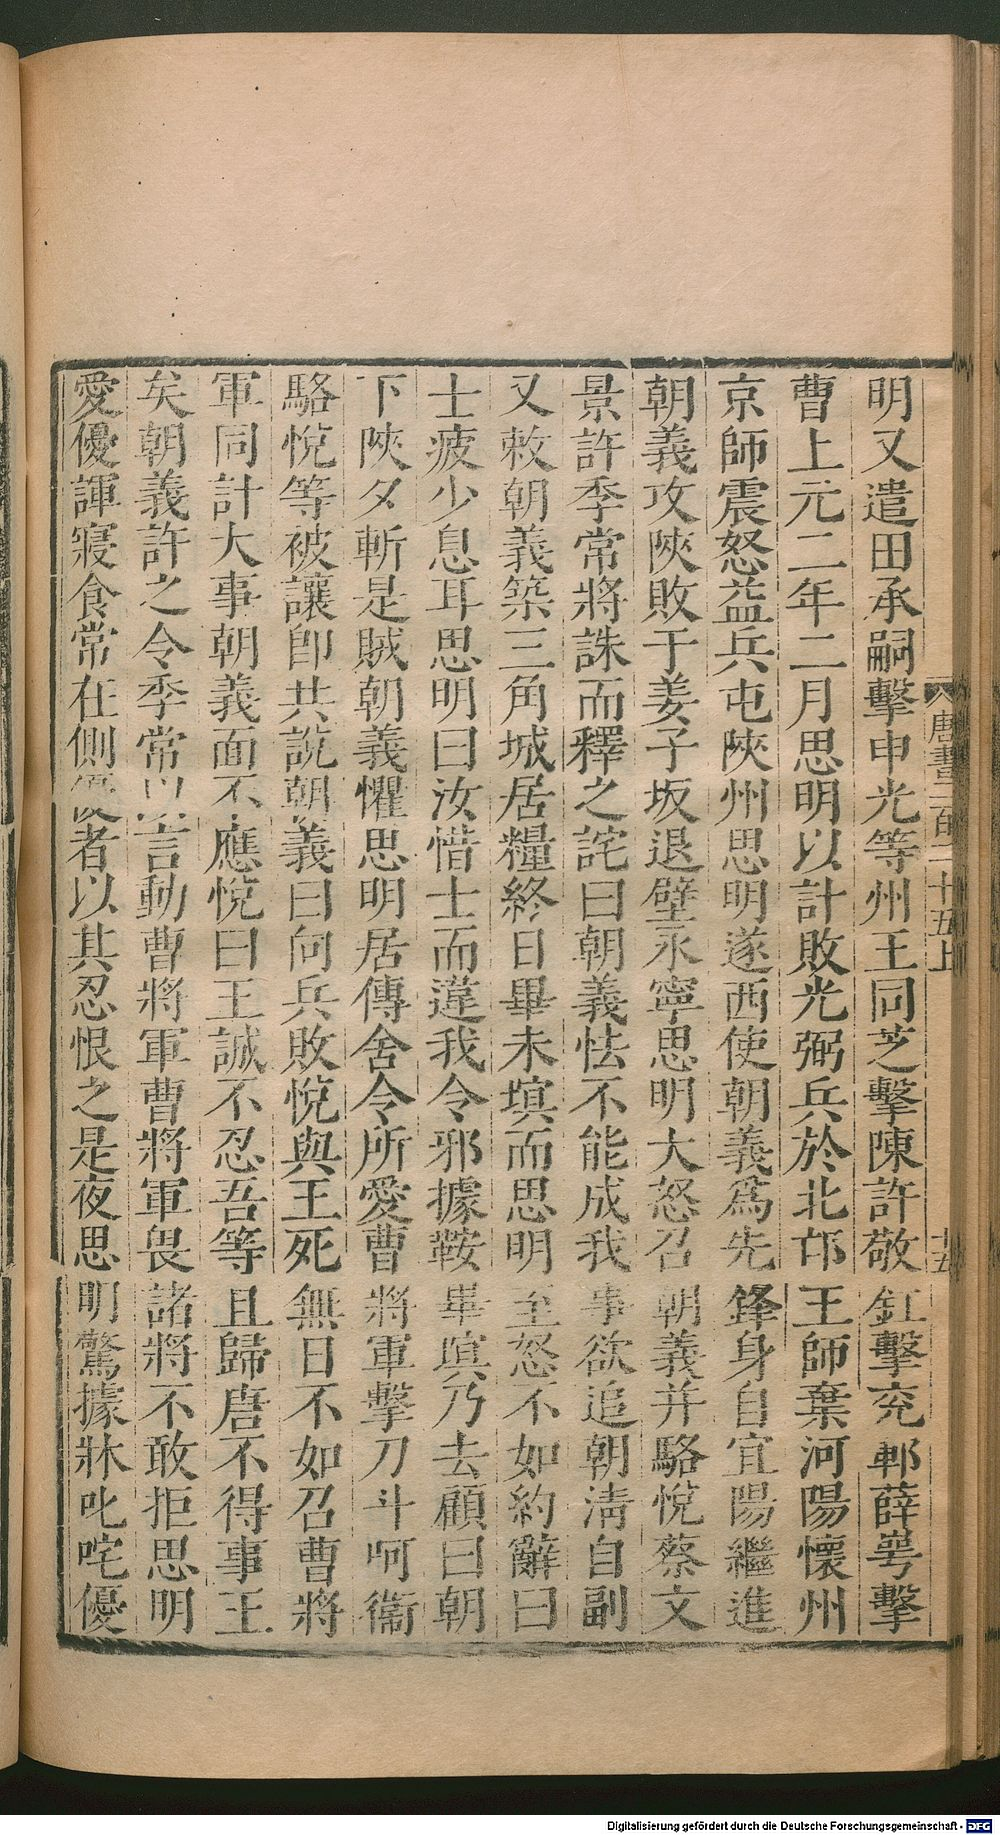 明又遣田承嗣擊申光等州王同芝擊陳許敬釭擊兖鄆薛萼擊
曹上元二年二月思明以計敗光弼兵於北邙王師棄河陽懷州
京師震怒益兵屯陝州思明遂西使朝義爲先鋒身自宜陽繼進
朝義攻陝敗于姜子坂退壁永寧思明大怒召朝義并駱悅蔡文
景許季常將誅而釋之詫曰朝義怯不能成我事欲追朝清自副
又敕朝義築三角城居糧終日畢未墐而思明至怒不如約辭曰
士疲少息耳思明曰汝惜士而違我令邪據鞍畢墐乃去顧曰朝
下陝夕斬是賊朝義懼思明居傳舍令所愛曹將軍擊刀斗呵衞
駱悅等被讓卽共說朝義曰向兵敗悅與王死無日不如召曹將
軍同計大事朝義面不應悅曰王誠不忍吾等且歸唐不得事王
矣朝義許之令季常以言動曹將軍曹將軍畏諸將不敢拒思明
愛優諢寢食常在側優者以其忍恨之是夜思明驚據牀叱咤優
唐書二百二十五上
十五
Digitalisierung gefördert durch die Deutsche Forschungsgemeinschaft - DFG